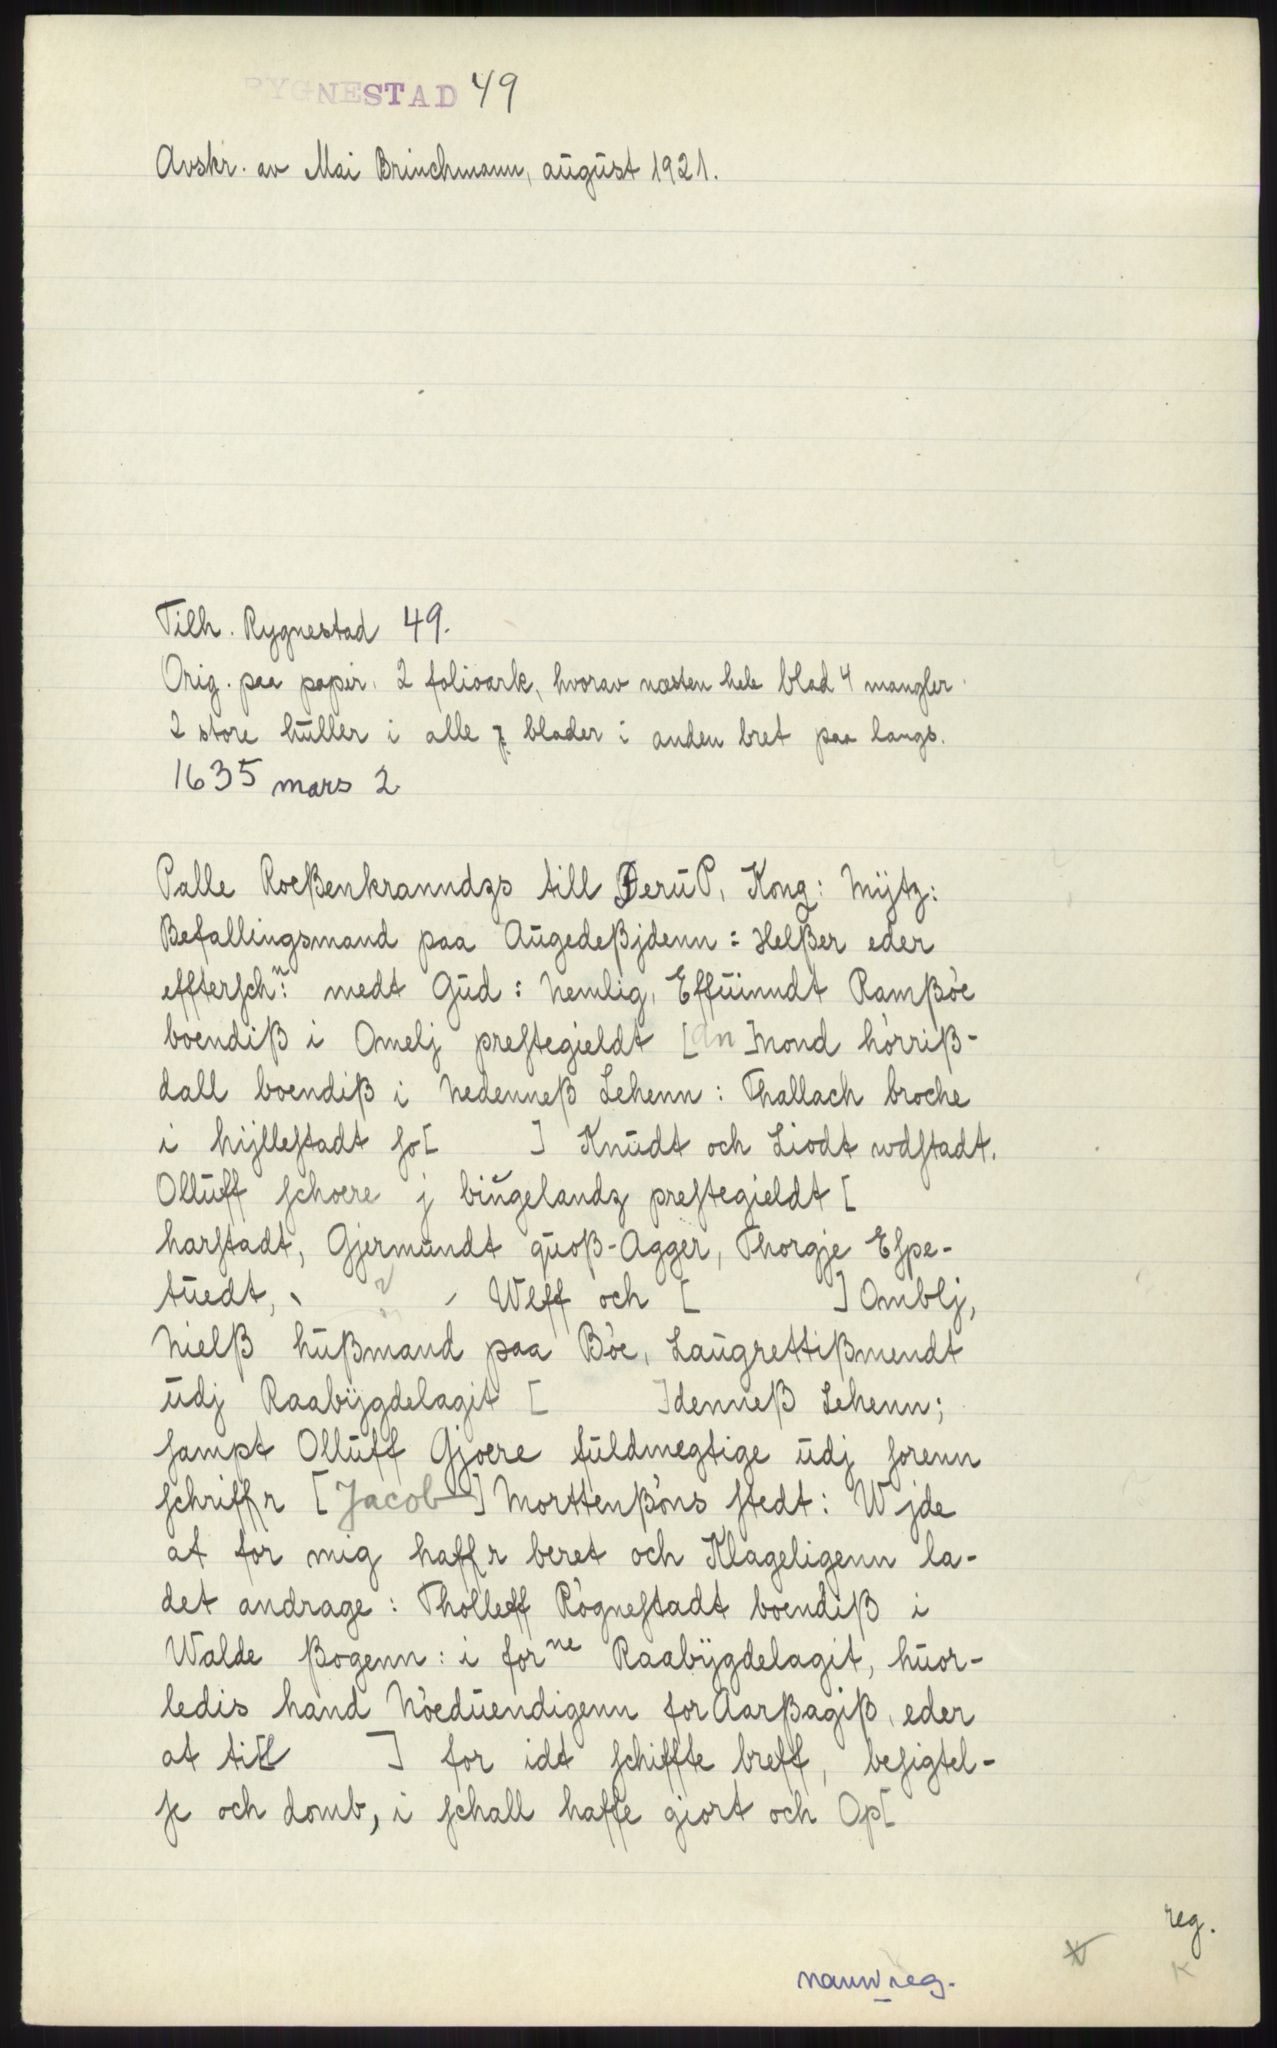 RYGNESTAD 49
Avskr. av Mai Brinchmann, august 1921.
Tilh. Rygnestad 49.
Orig. paa papir, 2 folioark, hvorav næsten hele blad 4 mangler.
2 store huller i alle blader i anden bret paa langs.
1635 mars 2.
Palle Roeßenkranndzs till Øerup, Kong: Mÿtz:
Befallingsmand paa Augedeßjdenn: Helßer eder
effterschn: medt Gud: Nemlig, Effuinndt Ramßöe
boendiß i Omelj prestegieldt [An]mond hörriß-
dall boendiß i Nedenneß Lehenn: Thallach broche
i hijllestadt so[ ] Knudt och Liodt wdstadt.
Olluff schoere j biugelandz prestegieldt [
harstadt, Gjermundt quoß-Agger, Thorgje Espe-
tuedt, Wlff och [ ] Omblj,
Nielß hußmand paa Böe, Laugrettißmendt
udj Raabÿgdelagit [ ]denneß Lehenn;
sampt Olluff Gjoere fuldmegtige udj sorenn
schriffr [Jacob] Morttenßöns stedt: Wjde
at for mig haffr beret och Klageligenn la-
det andrage: Tholleff Rögnestadt boendiß i
Walde ßogenn: i forne Raabÿgdelagit, huor-
ledis hand Nöeduendigenn for Aarßagiß, eder
at till ] for idt schiffte breff, besigtel-
se och domb, i schall haffe giort och Op[
reg.
navnreg.